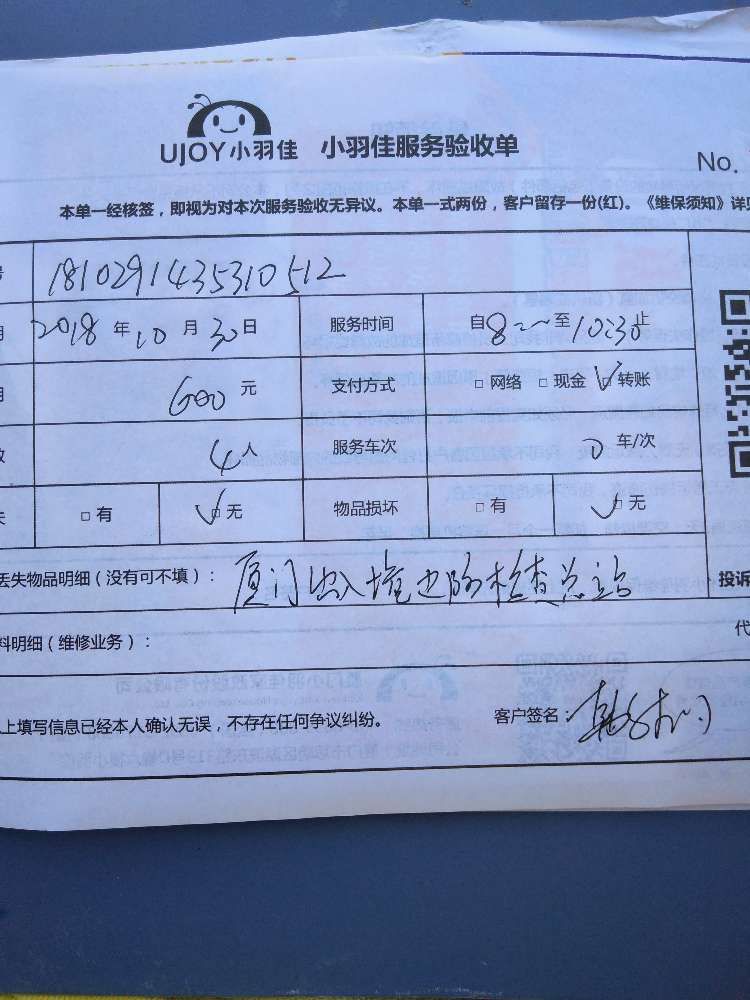 UJOY小羽佳 小羽佳服务验收单
No.
本单一经核签，即视为对本次服务验收无异议。本单一式两份，客户留存一份(红)。《维保须知》详见
号 1810291435310512
期 2018 年 10 月 30 日 服务时间 自 8:00 至 10:30 止
用 600 元 支付方式 □ 网络 □ 现金 ☑ 转账
数 4 人 服务车次 0 车/次
失 □ 有 ☑ 无 物品损坏 □ 有 ☑ 无
丢失物品明细（没有可不填）： 厦门出入境边防检查总站
投诉
料明细（维修业务）：
代
上填写信息已经本人确认无误，不存在任何争议纠纷。 客户签名：